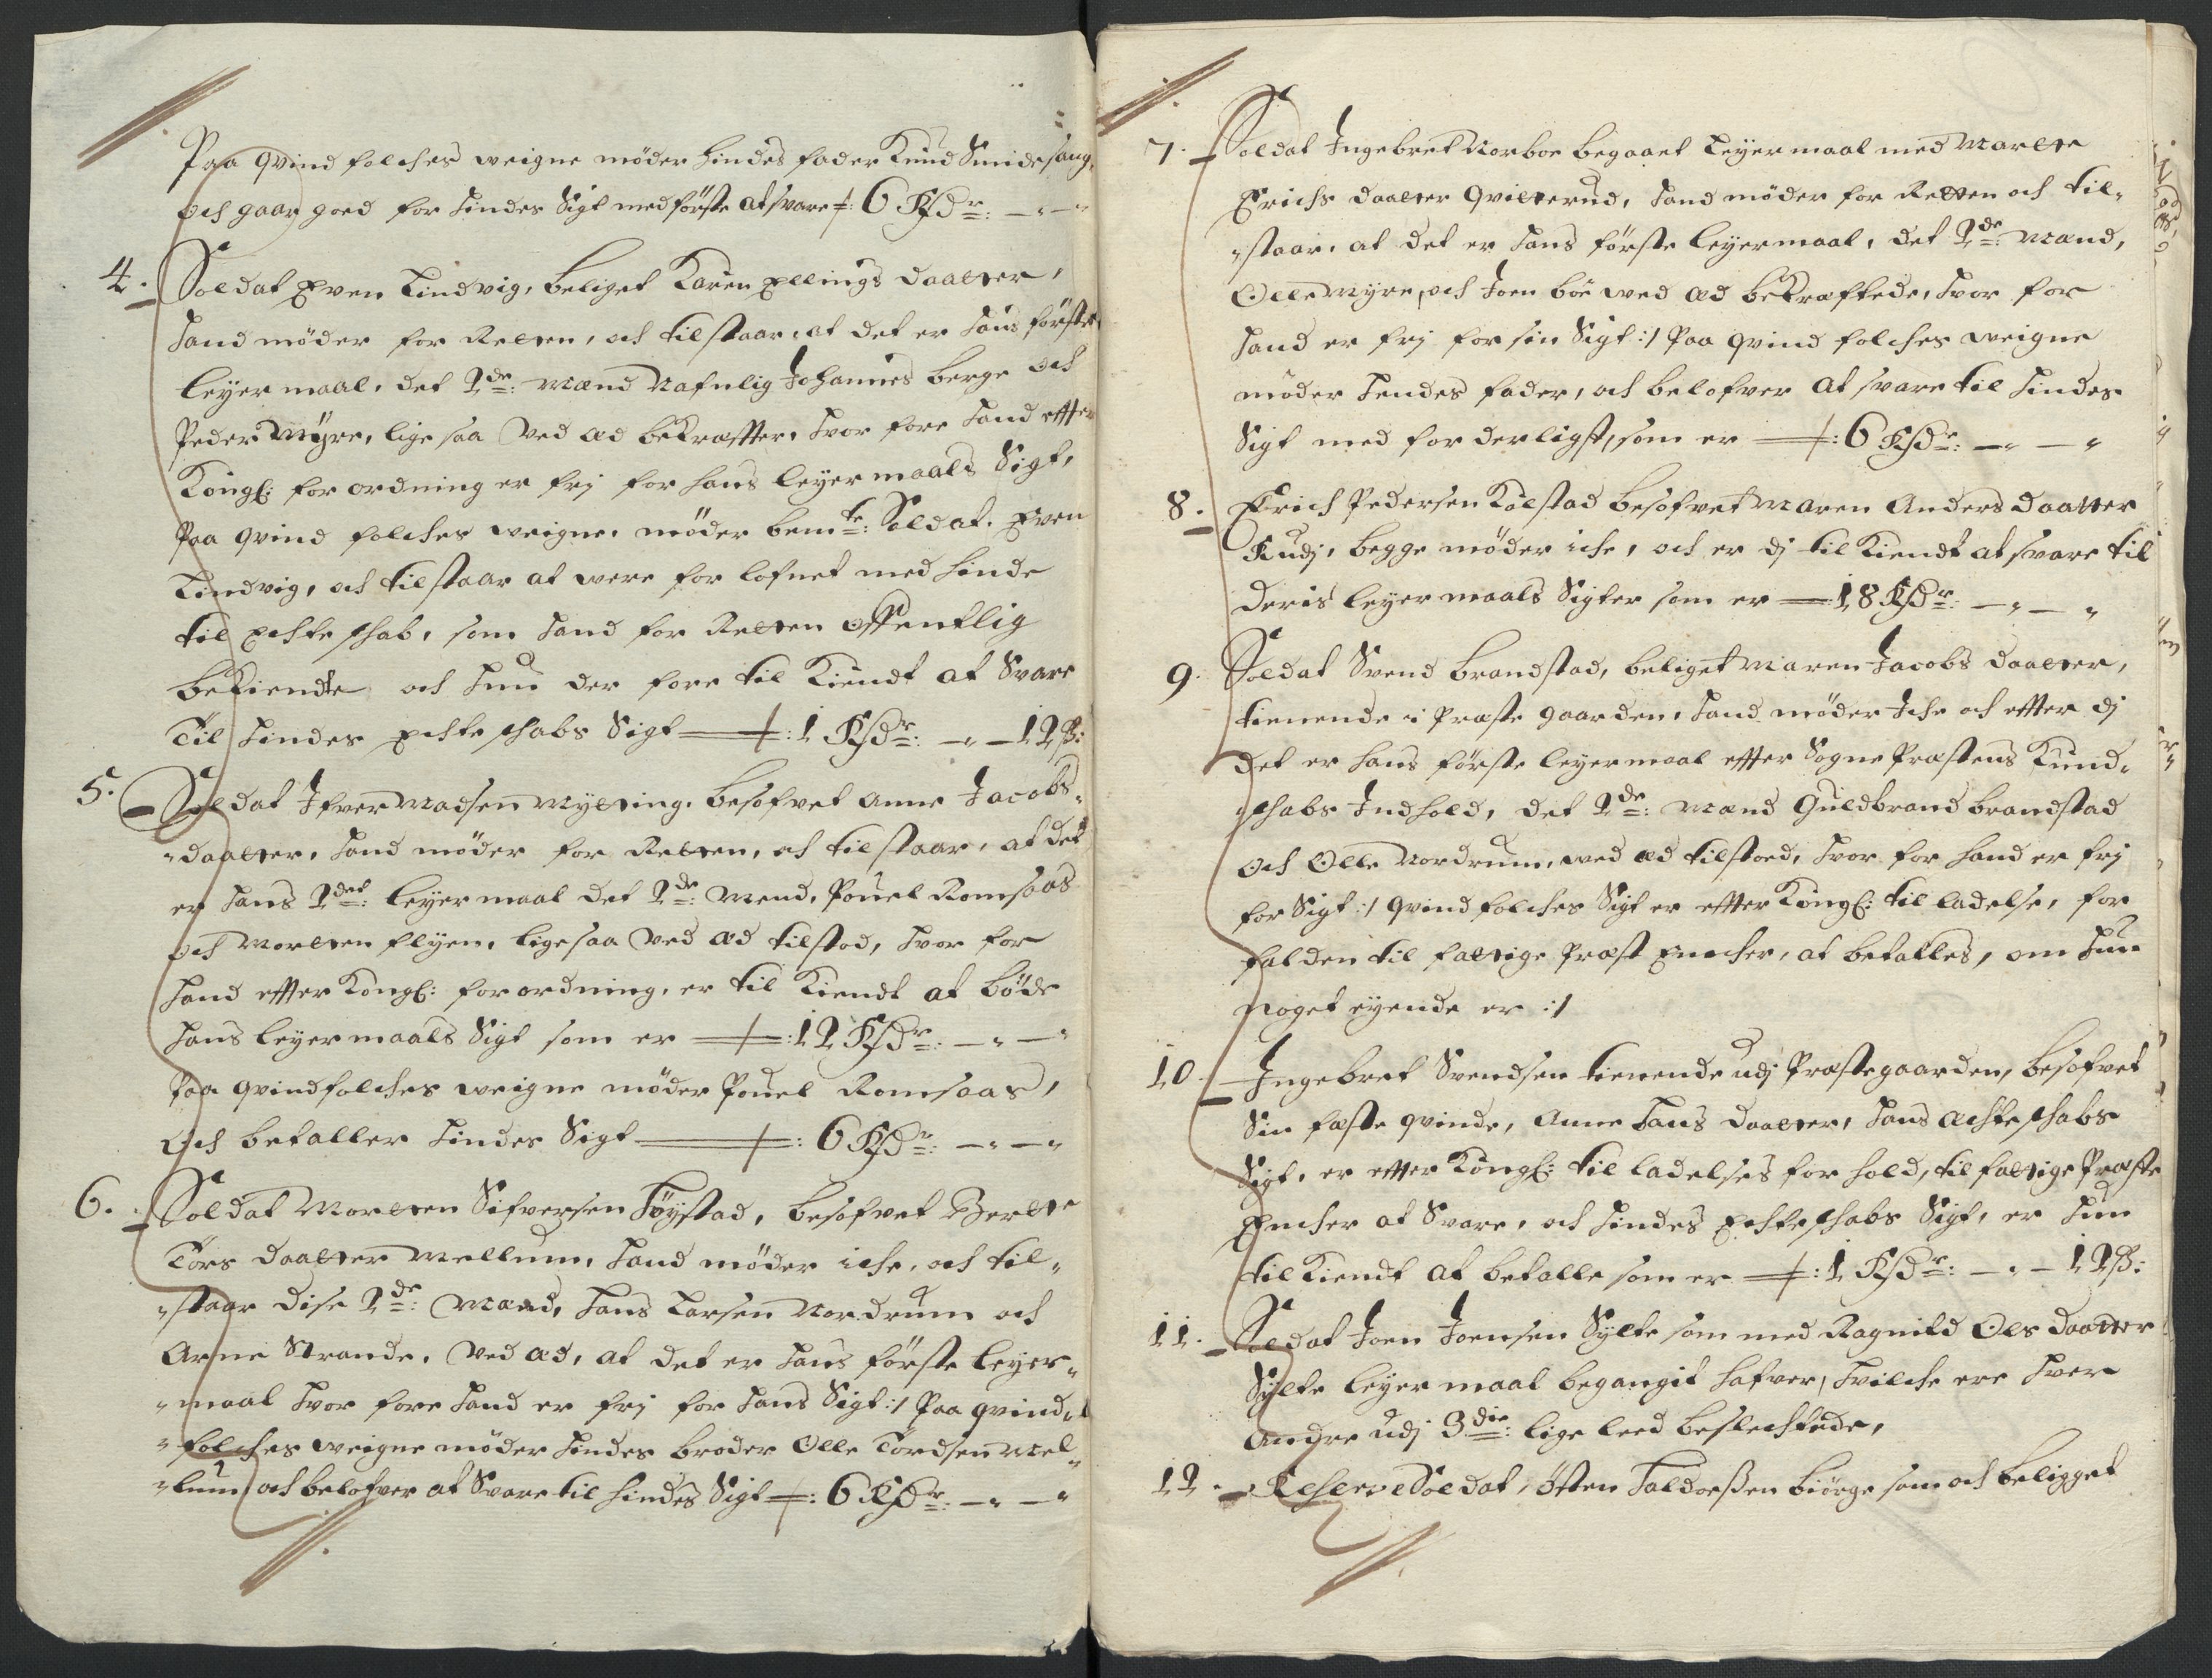 Paa qvind folches weigne møder hindes fader Knud Smidesang,
och gaar goed for hindes Sigt med første at svare 6 Rdr: – „ – „
4. Soldat Even Lindvig, beliget Karen Ellings daatter,
hand møder for Retten, och tilstaar, at det er hans første
leyermaal, det 2de: mænd Nafnlig Johannes berge och
Peder Myre, lige saa ved æd bekræffter, hvor fore hand effter
Kongl: for ordning er frj for hans leyermaals Sigt,
Paa qvind folches weigne, møder bemte: Soldat, Even
Lindvig, och tilstaar at were for lofvet med hinde
til Echte schab, som hand for Retten offentlig
bekiendte och hun der fore til Kiendt at Svare
Til hindes Echte schabs Sigt : 1 Rdr: – „ – 12 ß:
5. Soldat Ifver Madsen Mytting, besofvet Anne Jacobs„
„daatter, hand møder for Retten, och tilstaar, at det
er hans 2det: leyermaal det 2de: Mend, Pouel Romsaas
och Morten flyen, ligesaa ved æd tilstod, hvor for
hand effter Kongl: forordning, er til Kiendt at bøde
hans leyermaals Sigt som er : 12 Rdr: – „ – „
Paa qvindfolches weigne møder Pouel Romsaas,
Och betaller hindes Sigt : 6 Rdr: – „ – „
6. Soldat Morten Sifversen Høystad, besofvet Berte
Tors daatter Mellum, hand møder iche, och til„
„staar dise 2de: Mænd, hans Larsen Nordrum och
Arne Strande, ved æd, at det er hans første leyer„
„maal hvor fore hand er frj for hans Sigt :/ Paa qvind„
„folches weigne møder hindes broder Olle Tordsen Mel„
„lum och belofver at Svare til hindes Sigt : 6 Rdr: – „ – „
7. Soldat Ingebret Norboe begaaet Leyermaal med Marte
Erichs daatter qvitterud, hand møder for Retten och til„
„staar, at det er hans første leyermaal, det 2de: Mænd,
Olle Myre, och Joen böe ved æd bekræftede, hvor for
hand er frj for sin Sigt :/ Paa qvind folches weigne
møder hendes fader, och belofver at svare til hindes
Sigt med forderligst, som er : 6 Rdr: – „ – „
8. Erich Pedersen Kolstad besofvet Maren Anders daatter
Rudj, begge møder iche, och er dj til Kiendt at svare til
deris leyermaals Sigter som er 18 Rdr: – „ – „
9. Soldat Svend brandstad, beliget Maren Jacobs daatter,
tienende i Præste gaarden, hand møder Iche och effter dj
det er hans første leyermaal effter Sogne Præstens Kund„
„schabs Indhold, det 2de: Mænd Guldbrand brandstad
och Olle Nordrum, ved æd tilstoed, hvor for hand er frj
for Sigt :/ qvindfolches Sigt er effter Kongl: til ladelse, for
falden til fattige Præst Encher, at betalles, om hun
noget eyende er :/
10. Ingebret Svendsen tienende udj Præstegaarden, besofvet
Sin fæste qvinde, Anne Hans daatter, hans Æchte schabs
Sigt, er effter Kongl: til ladelses for hold, til fattige Præste
Encher at Svare, och hindes Echteschabs Sigt, er hun
til Kiendt at betalle som er : 1 Rdr: – „ – 12 ß:
11. Soldat Joen Joensen Sylte som med Ragnild Ols daatter
Sylte leyer maal begangit hafver, hvilche ere hver
andre udj 3die: lige leed beslechtede,
12. Reserve Soldat, Osten Haldorßen biørge som och beligget